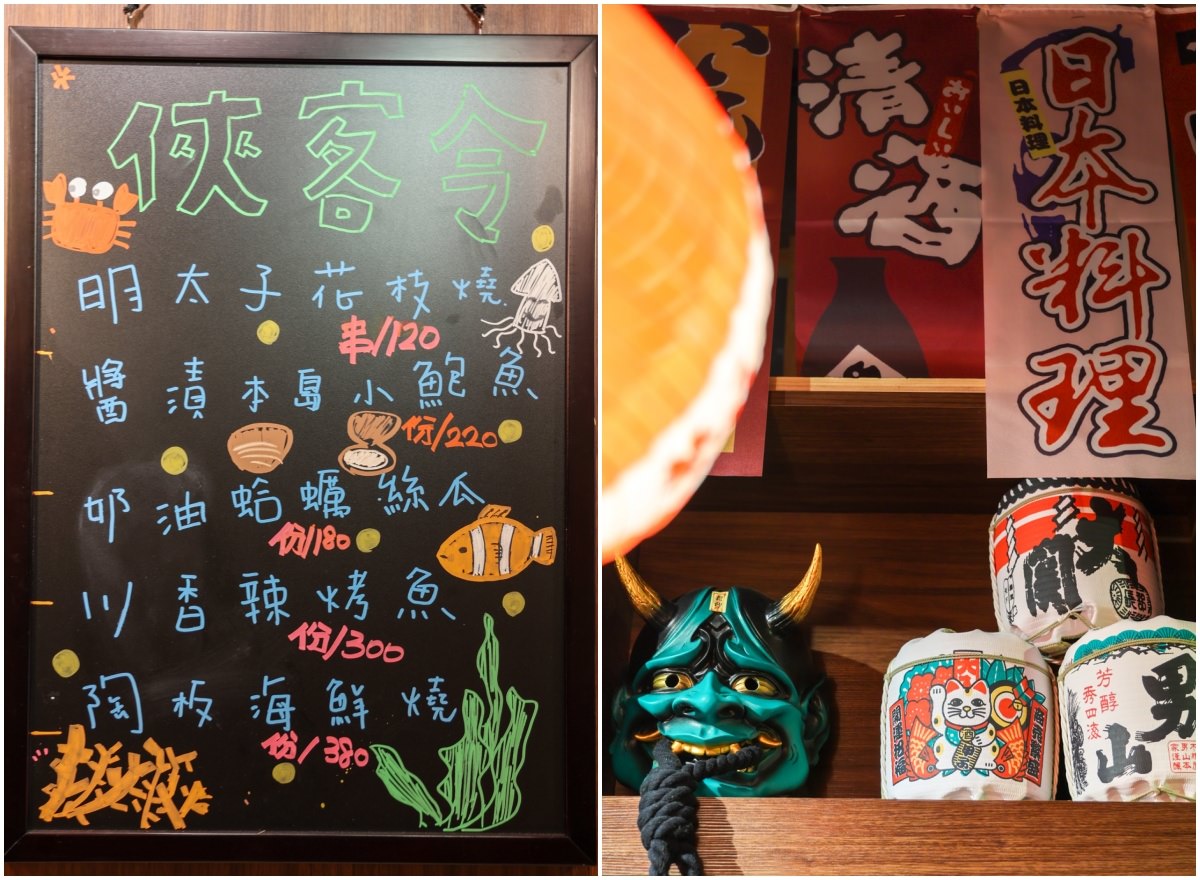 俠客令
明太子花枝燒
串/120
醬漬本島小鮑魚
份/220
奶油蛤蠣絲瓜
份/180
川香辣烤魚
份/300
陶板海鮮燒
份/380
清酒
おいしい
日本料理
日本料理
男山
芳醇